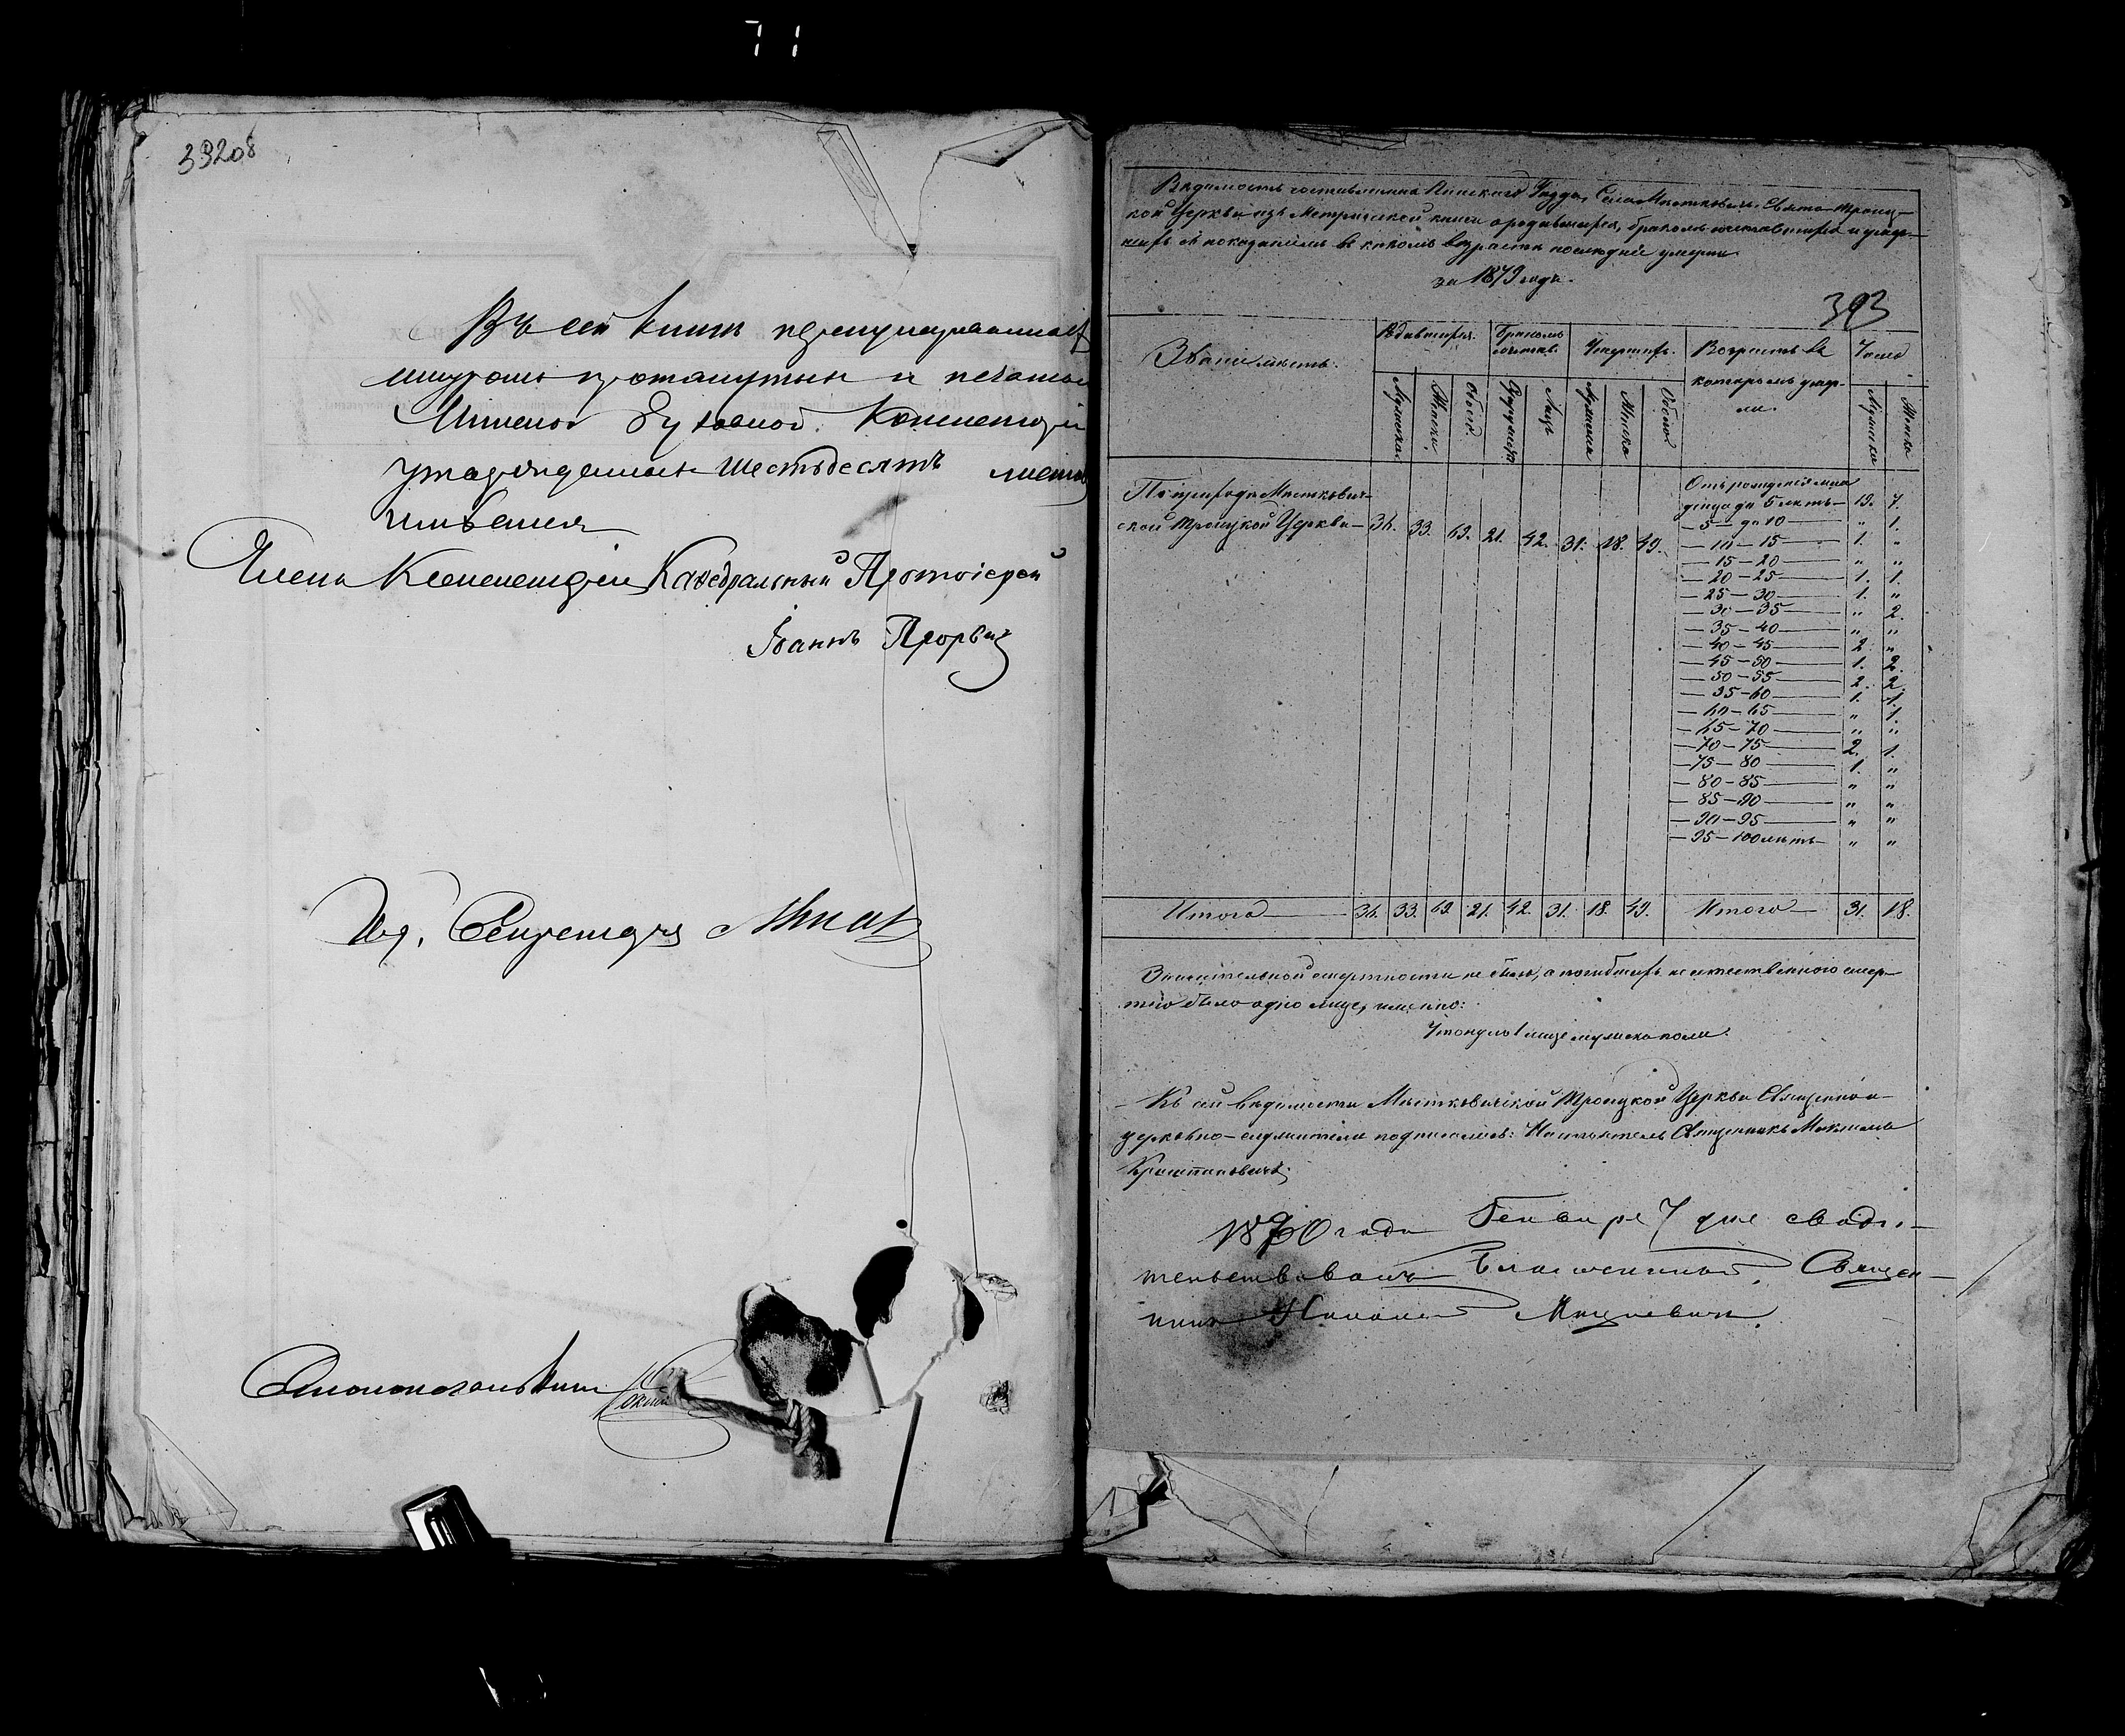 71
39208
Въ сей книгѣ перенумерованной
шнуромъ протянутыхъ и печатью
Минской Духовной Консисторіи
утвержденныхъ шестьдесятъ листовъ
Членъ Консисторіи Каѳедральный Протоіерей
Іоаннъ
Секретарь
Столоначальникъ
Вѣдомость составленная Пинскаго Уѣзда, Села Мѣстковичъ Свято-Троиц-
кой Церкви изъ Метрической книги о родившихся, бракомъ сочетавшихся и умер-
шихъ съ показаніемъ въ какомъ возрастѣ послѣдніе умерли
за 1879 годъ.
393
Званіе мѣстъ. Родившихся. Бракомъ сочетав. Умершихъ. Возрастъ въ Число
которомъ умер-
ли.
Мужеска Женска Обоего Супружествъ Лицъ Мужеска Женска Обоего Мужеска Женска
По приходу Мѣсткович-
ской Троицкой Церкви — 36. 33. 69. 21. 42. 31. 18. 49.
Отъ рожденія мла
денца до 5 лѣтъ — 19. 7.
— 5 — до 10 — „ 1.
— 10 — 15 — 1. „
— 15 — 20 — „ „
— 20 — 25 — 1. 1.
— 25 — 30 — 1. „
— 30 — 35 — „ 2.
— 35 — 40 — „ „
— 40 — 45 — 2. „
— 45 — 50 — 1. 2.
— 50 — 55 — 2. 2.
— 55 — 60 — 1. 1.
— 60 — 65 — „ 1.
— 65 — 70 — „ „
— 70 — 75 — 2. 1.
— 75 — 80 — 1. „
— 80 — 85 — „ „
— 85 — 90 — „ „
— 90 — 95 — „ „
— 95 — 100 лѣтъ — „ „
Итого — 36. 33. 69. 21. 42. 31. 18. 49. Итого — 31. 18.
Значительной смертности не было, а погибшихъ неестественною смер-
тію было одно лице, именно:
Утонуло 1 лице мужеска пола.
Къ сей вѣдомости Мѣстковичской Троицкой Церкви Священно и
церковно-служители подписались: Настоятель Священникъ Максимъ
1880 года Генваря 7 дня свидѣ-
тельствовалъ Благочинный, Священ-
никъ Мацкевичъ.